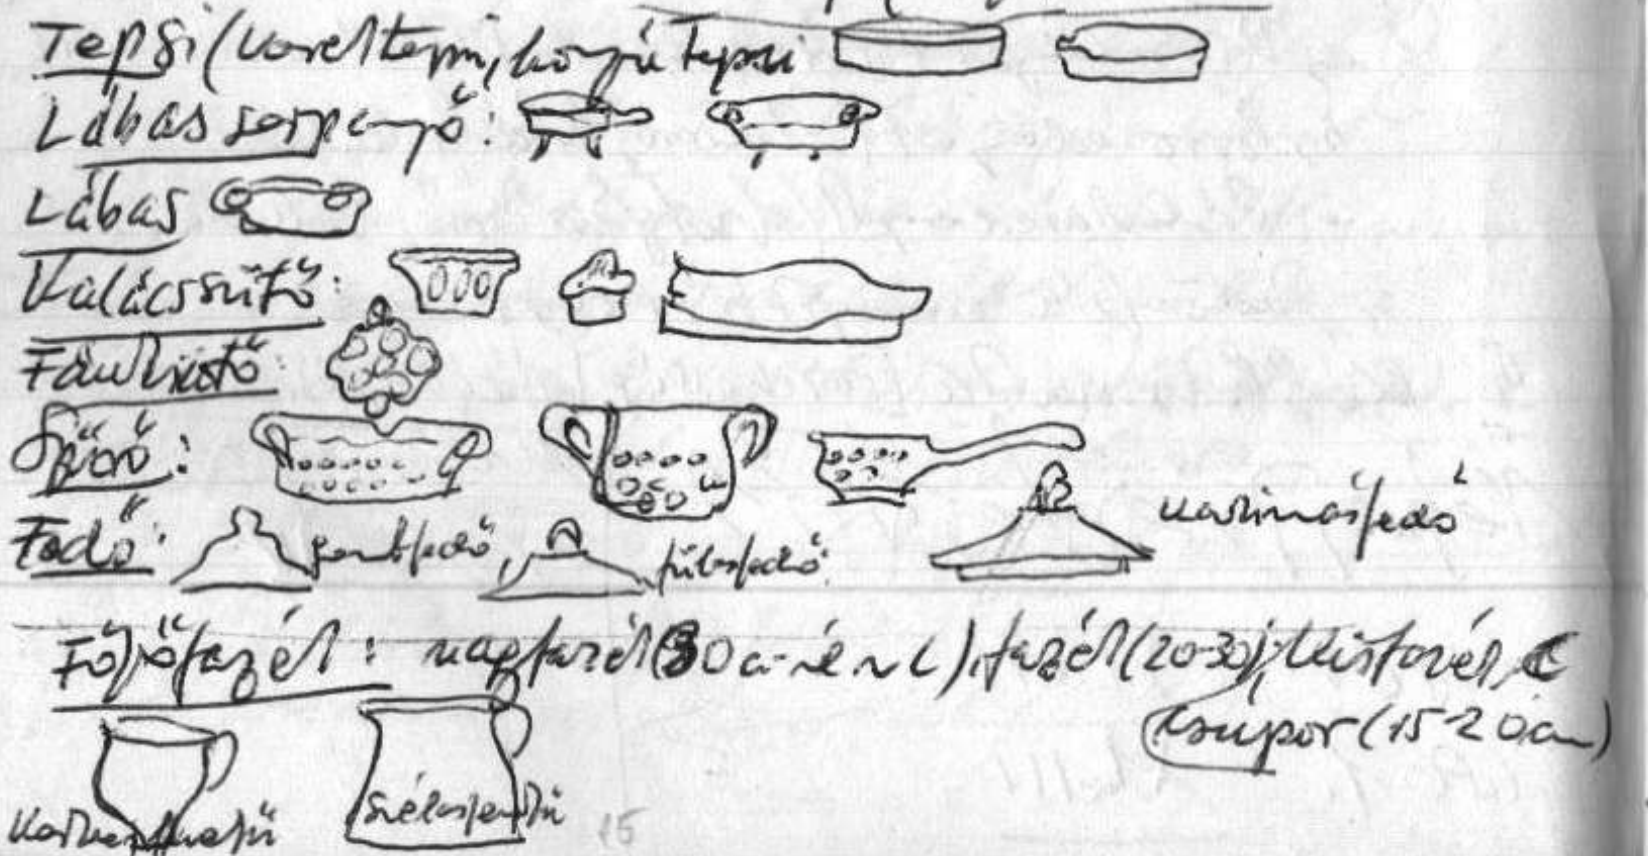 Tepsi (kerek tepsi, hosszú tepsi
Lábas serpenyő:
Lábas
Kalácssütő:
Fánksütő:
Szűrő:
Fedő: gombfedő, fülesfedő, karimásfedő
Főzőfazék: nagyfazék (30 cm-nél), fazék (20-30), kisfazék,
csupor (15-20 cm)
fenekű szélesfenekű
15